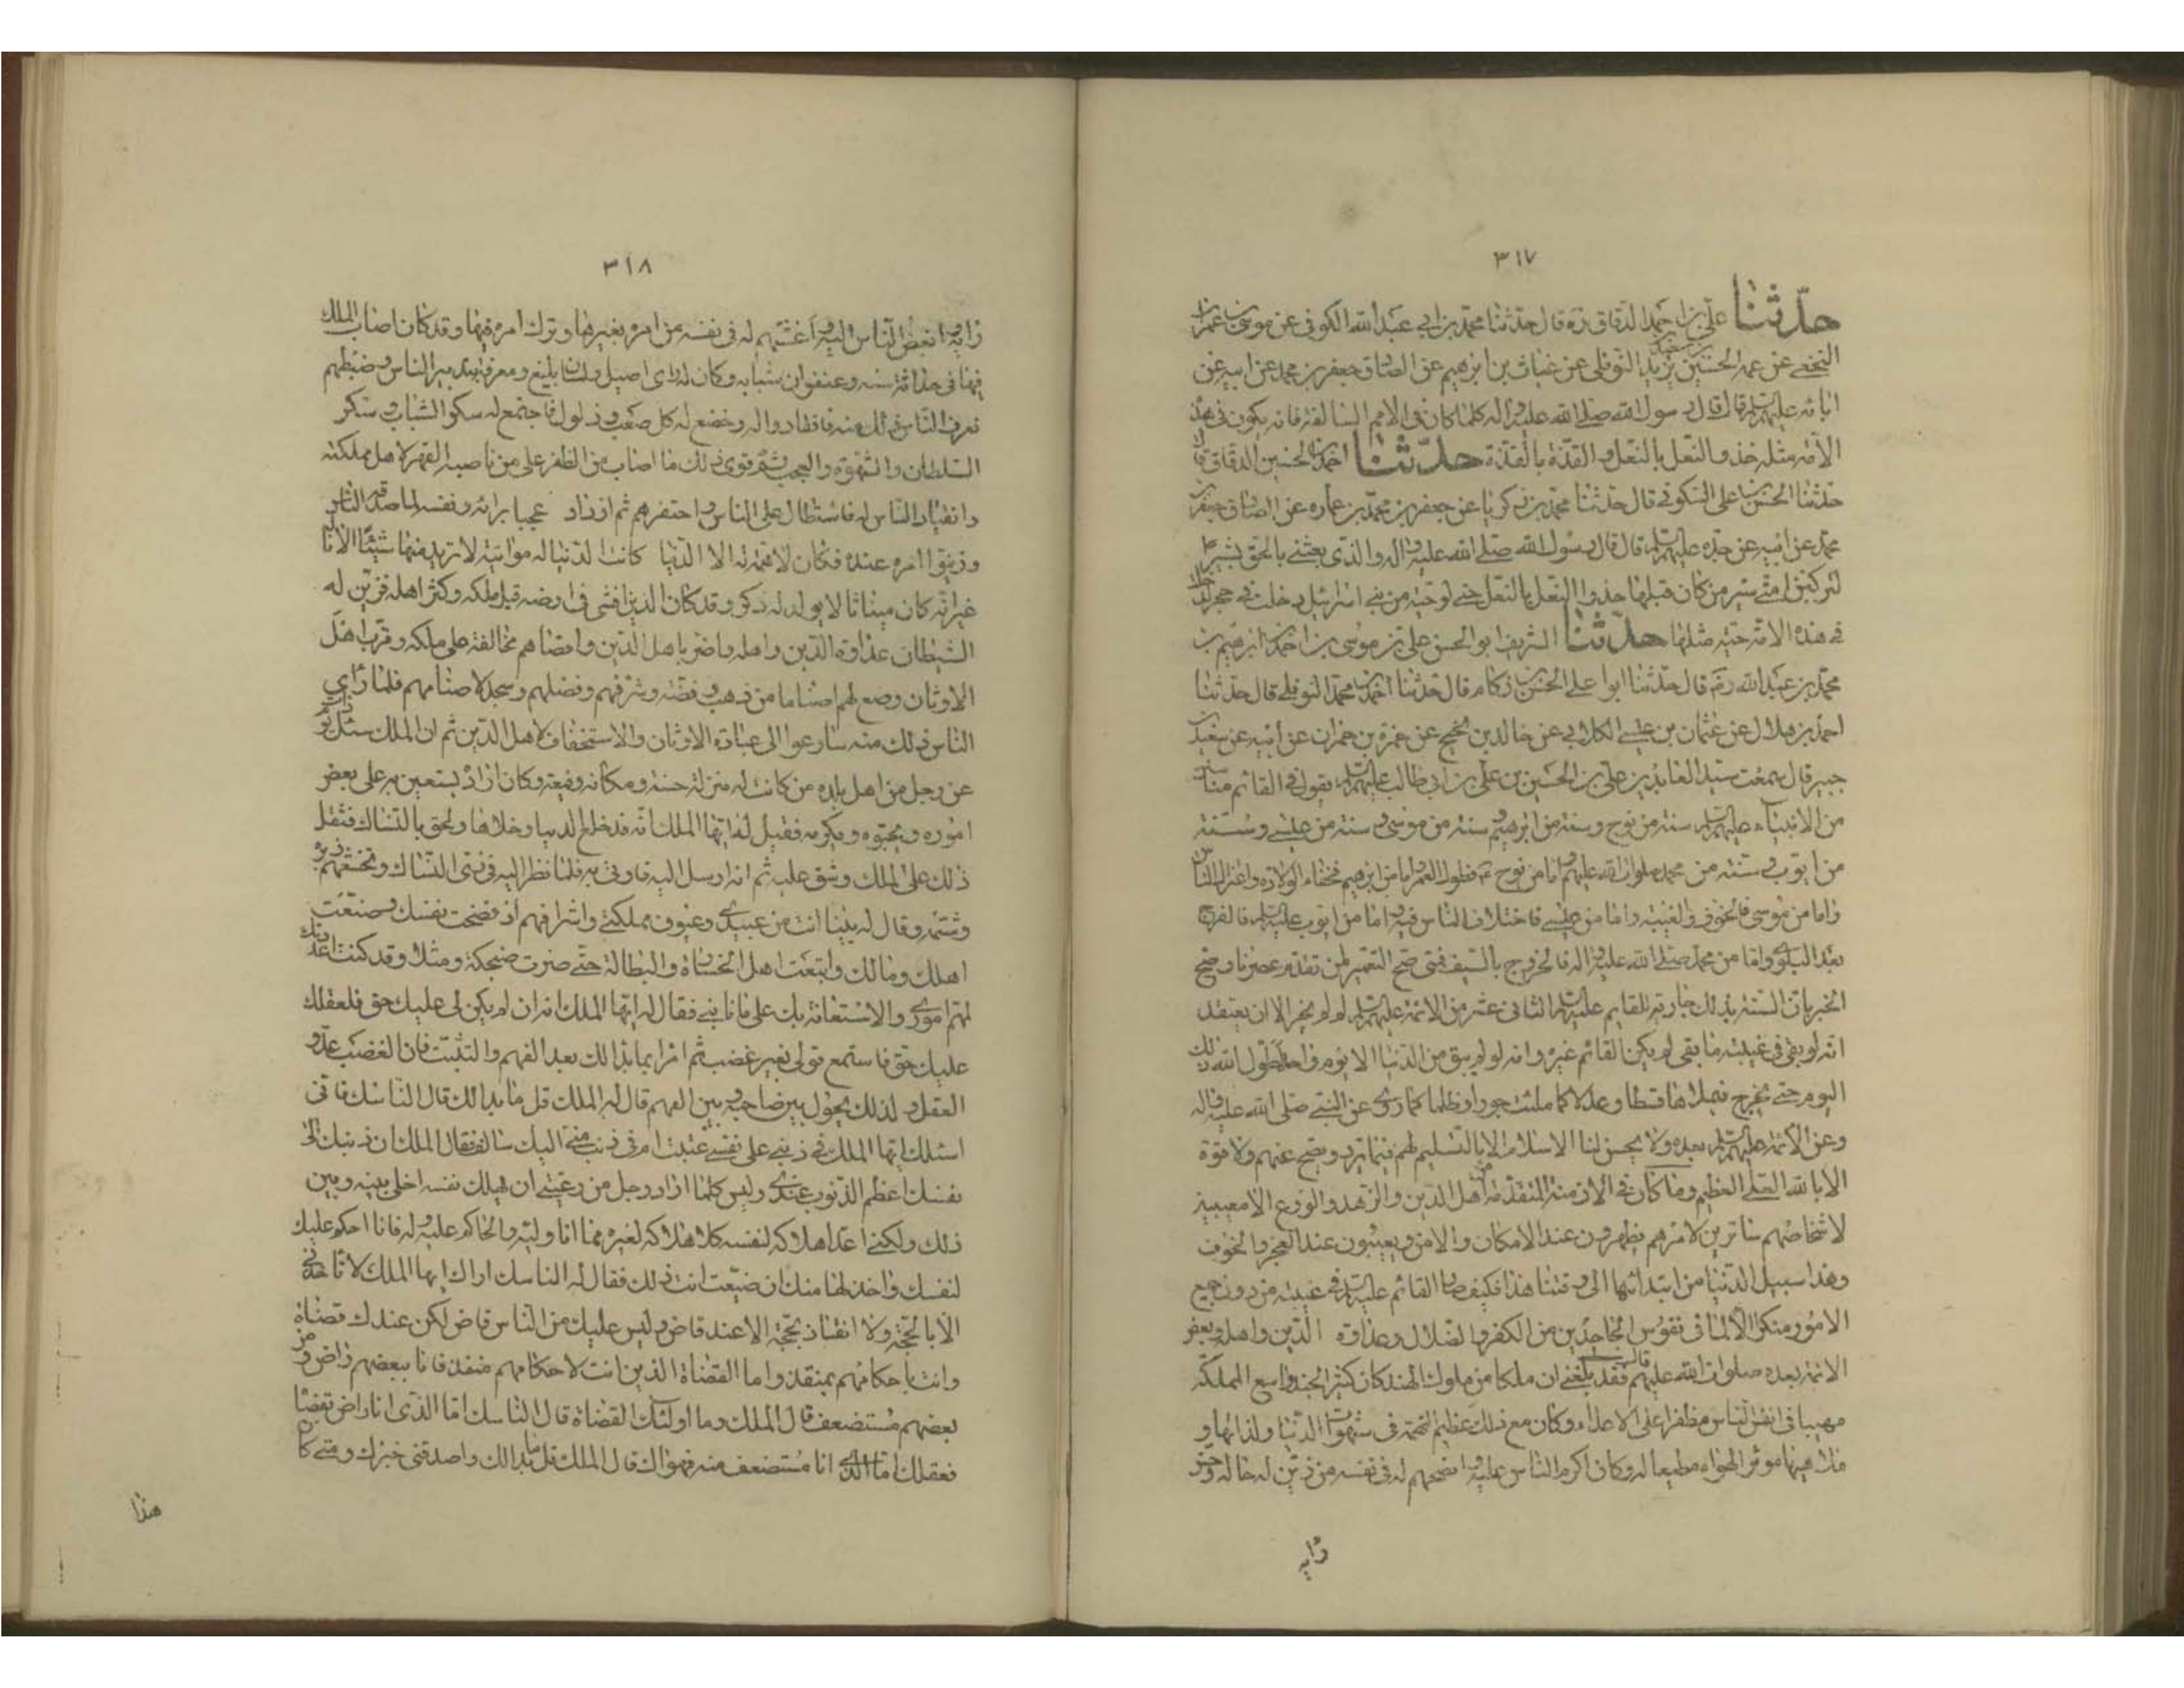 ٣١٧
حدّثنا علي بن احمد الدقاق ره قال حدثنا محمد بن ابي عبد الله الكوفي عن موسى بن عمران
النخعي عن عمه الحسين بن يزيد النوفلي عن غياث بن ابرهيم عن الصادق جعفر بن محمد عن ابيه عن
ابائه عليهم السلم قال قال رسول الله صلى الله عليه واله كلما كان في الامم السالفة فانه يكون في هذه
الامة مثله حذو النعل بالنعل والقذة بالقذة حدّثنا احمد بن الحسين الدقاق قال
حدثنا الحسن بن علي السكوني قال حدثنا محمد بن زكريا عن جعفر بن محمد بن عماره عن الصادق جعفر بن
محمد عن ابيه عن جده عليهم السلم قال قال رسول الله صلى الله عليه واله والذي بعثني بالحق بشيرا
لتركبن امتي سير من كان قبلها حذوا النعل بالنعل حتى لو حية من بني اسرائيل دخلت في حجر لدخلت
في هذه الامة حية مثلها حدّثنا الشريف ابو الحسن علي بن موسى بن احمد بن ابرهيم بن
محمد بن عبد الله رضه قال حدثنا ابوا علي الحسن بن ركام قال حدثنا احمد بن محمد النوفلي قال حدثنا
احمد بن هلال عن عثمان بن عيسى الكلابي عن خالد بن نجيح عن حمزة بن حمران عن ابيه عن سعيد بن
جبير قال سمعت سيد العابدين علي بن الحسين بن علي بن ابي طالب عليهم السلم يقول في القائم منا سنن
من الانبياء عليهم السلم سنة من نوح وسنة من ابرهيم وسنة من موسى وسنة من عيسى وسنة
من ايوب وسنة من محمد صلوات الله عليهم واما من نوح ع فطول العمر واما من ابرهيم فخفاء الولادة واعتزال الناس
واما من موسى فالخوف والغيبة واما من عيسى فاختلاف الناس فيه واما من ايوب عليه السلم فالفرج
بعد البلوى واما من محمد صلى الله عليه واله فالخروج بالسيف فمتى صح التعمير لمن تقدم عصرنا وصح
الخبر بان السنة بذلك جارية للقايم عليه السلم الثاني عشر من الائمة عليهم السلم لم يجز الا ان يعتقد
انه لو بقي في غيبته ما بقي لم يكن القائم غيره وانه لو لم يبق من الدنيا الا يوم واحد لطول الله ذلك
اليوم حتى يخرج فيملاها قسطا وعدلا كما ملئت جورا وظلما كما روى عن النبي صلى الله عليه واله
وعن الائمة عليهم السلم بعده ولا يحسن لنا الاسلام الا بالتسليم لهم فيما يرد ويصح عنهم ولا قوة
الا بالله العلي العظيم وما كان في الازمنة المتقدمة من اهل الدين والزهد والورع الا مغيبين
لاشخاصهم ساترين لامرهم يظهرون عند الامكان والامن ويغيبون عند العجز والخوف
وهذا سبيل الدنيا من ابتدائها الى وقتنا هذا فكيف صار القائم عليه السلم في غيبته من دون جميع
الامور منكرا الا لما في نفوس الجاحدين من الكفر والضلال وعداوة الدين واهله وبغض
الائمة بعده صلوات الله عليهم فقد بلغني ان ملكا من ملوك الهند كان كثير الجند واسع المملكة
مهيبا في انفس الناس مظفرا على الاعداء وكان مع ذلك عظيم النهمة في شهوات الدنيا ولذاتها و
ملاهيها موثرا لهواه مطيعا له وكان اكرم الناس عليه وانصحهم له في نفسه من زين له حاله وحسن
رايه
٣١٨
رايه وابغض الناس اليه واغشهم له في نفسه من امره بغيرها وترك امره فيها وقد كان اصاب الملك
فيها في حداثة سنه وعنفوان شبابه وكان له راى اصيل ولسان بليغ ومعرفة بتدبير الناس وضبطهم
فعرف الناس ذلك منه فانقادوا له وخضع له كل صعب وذلول فاجتمع له سكر الشباب وسكر
السلطان والشهوة والعجب ثم قوى ذلك ما اصاب من الظفر على من ناصبه القهر لاهل مملكته
وانقياد الناس له فاستطال على الناس واحتقرهم ثم ازداد عجبا برائه ونفسه لما مدحه الناس
وزينوا امره عنده فكان لا همة له الا الدنيا كانت الدنيا له مواتية لا تريد منها شيئا الا نا له
غير انه كان ميناثا لا يولد له ذكر وقد كان الدين افشى في ارضه قبل ملكه وكثر اهله فزين له
الشيطان عداوة الدين واهله واضر باهل الدين واقصاهم مخالفة على ملكه وقرب اهل
الاوثان وصنع لهم اصناما من ذهب وفضة وشرفهم وفضلهم وسجد لاصنامهم فلما راى
الناس ذلك منه سارعوا الى عبادة الاوثان والاستخفاف لاهل الدين ثم ان الملك سئل يوما
عن رجل من اهل بلده من كانت له منزلة حسنة ومكانة رفيعة وكان اراد يستعين به على بعض
اموره ويحبوه ويكرمه فقيل له ايها الملك انه قد خلع الدنيا وخلاها ولحق بالنساك فثقل
ذلك على الملك وشق عليه ثم انه ارسل اليه فاوتى به فلما نظر اليه في زى النساك وتخشعهم زبره
وشتمه وقال له بينا انت من عبيدى وعيون مملكتي واشرافهم اذ فضحت نفسك وضيعت
اهلك ومالك واتبعت اهل الخسارة والبطالة حتى صرت ضحكة ومثلا وقد كنت اعددتك
لمهم امورى والاستعانة بك على ما نابني فقال له ايها الملك انه ان لم يكن لي عليك حق فلعقلك
عليك حق فاستمع قولي بغير غضب ثم امر بما بدا لك بعد الفهم والتثبت فان الغضب عدو
العقل ولذلك يحول بين صاحبه وبين الفهم قال له الملك قل ما بدا لك قال الناسك فاني
اسئلك ايها الملك في ذنبي على نفسي عتبت ام في ذنب مني اليك سالف فقال الملك ان ذنبك الى
نفسك اعظم الذنوب عندي وليس كلما اراد رجل من رعيتي ان يهلك نفسه اخلى بينه وبين
ذلك ولكني اعد اهلاكه لنفسه كاهلاكه لغيره مما انا وليه والحاكم عليه وله فانا احكم عليك
لنفسك واخذ لها منك ان ضيعت انت ذلك فقال له الناسك اراك ايها الملك لا تاخذني
الا بالحجة ولا انفاذ بحجة الا عند قاض وليس عليك من الناس قاض لكن عندك قضاة
وانت باحكامهم بمنقذ واما القضاة الذين انت لاحكامهم منفذ فانا ببعضهم راض ومن
بعضهم مستضعف قال الملك وما اولئك القضاة قال الناسك اما الذي انا راض بقضائه
فعقلك اما الذي انا مستضعف منه فهواك قال الملك قل ما بدا لك واصدقني خبرك ومتى كان
هذا